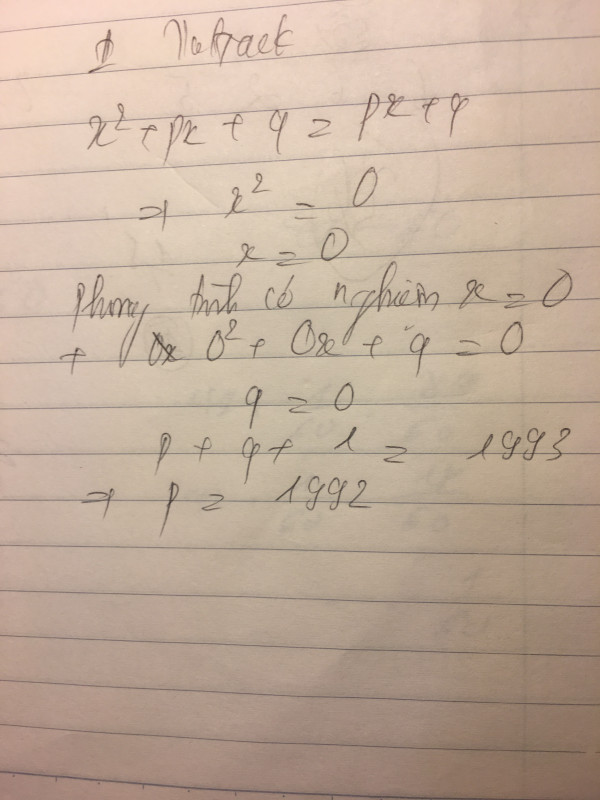 x² + px + q = px + q
⇒ x² = 0
x = 0
Phương trình có nghiệm x = 0
+ 0² + 0x + q = 0
q = 0
p + q + 1 = 1993
⇒ p = 1992